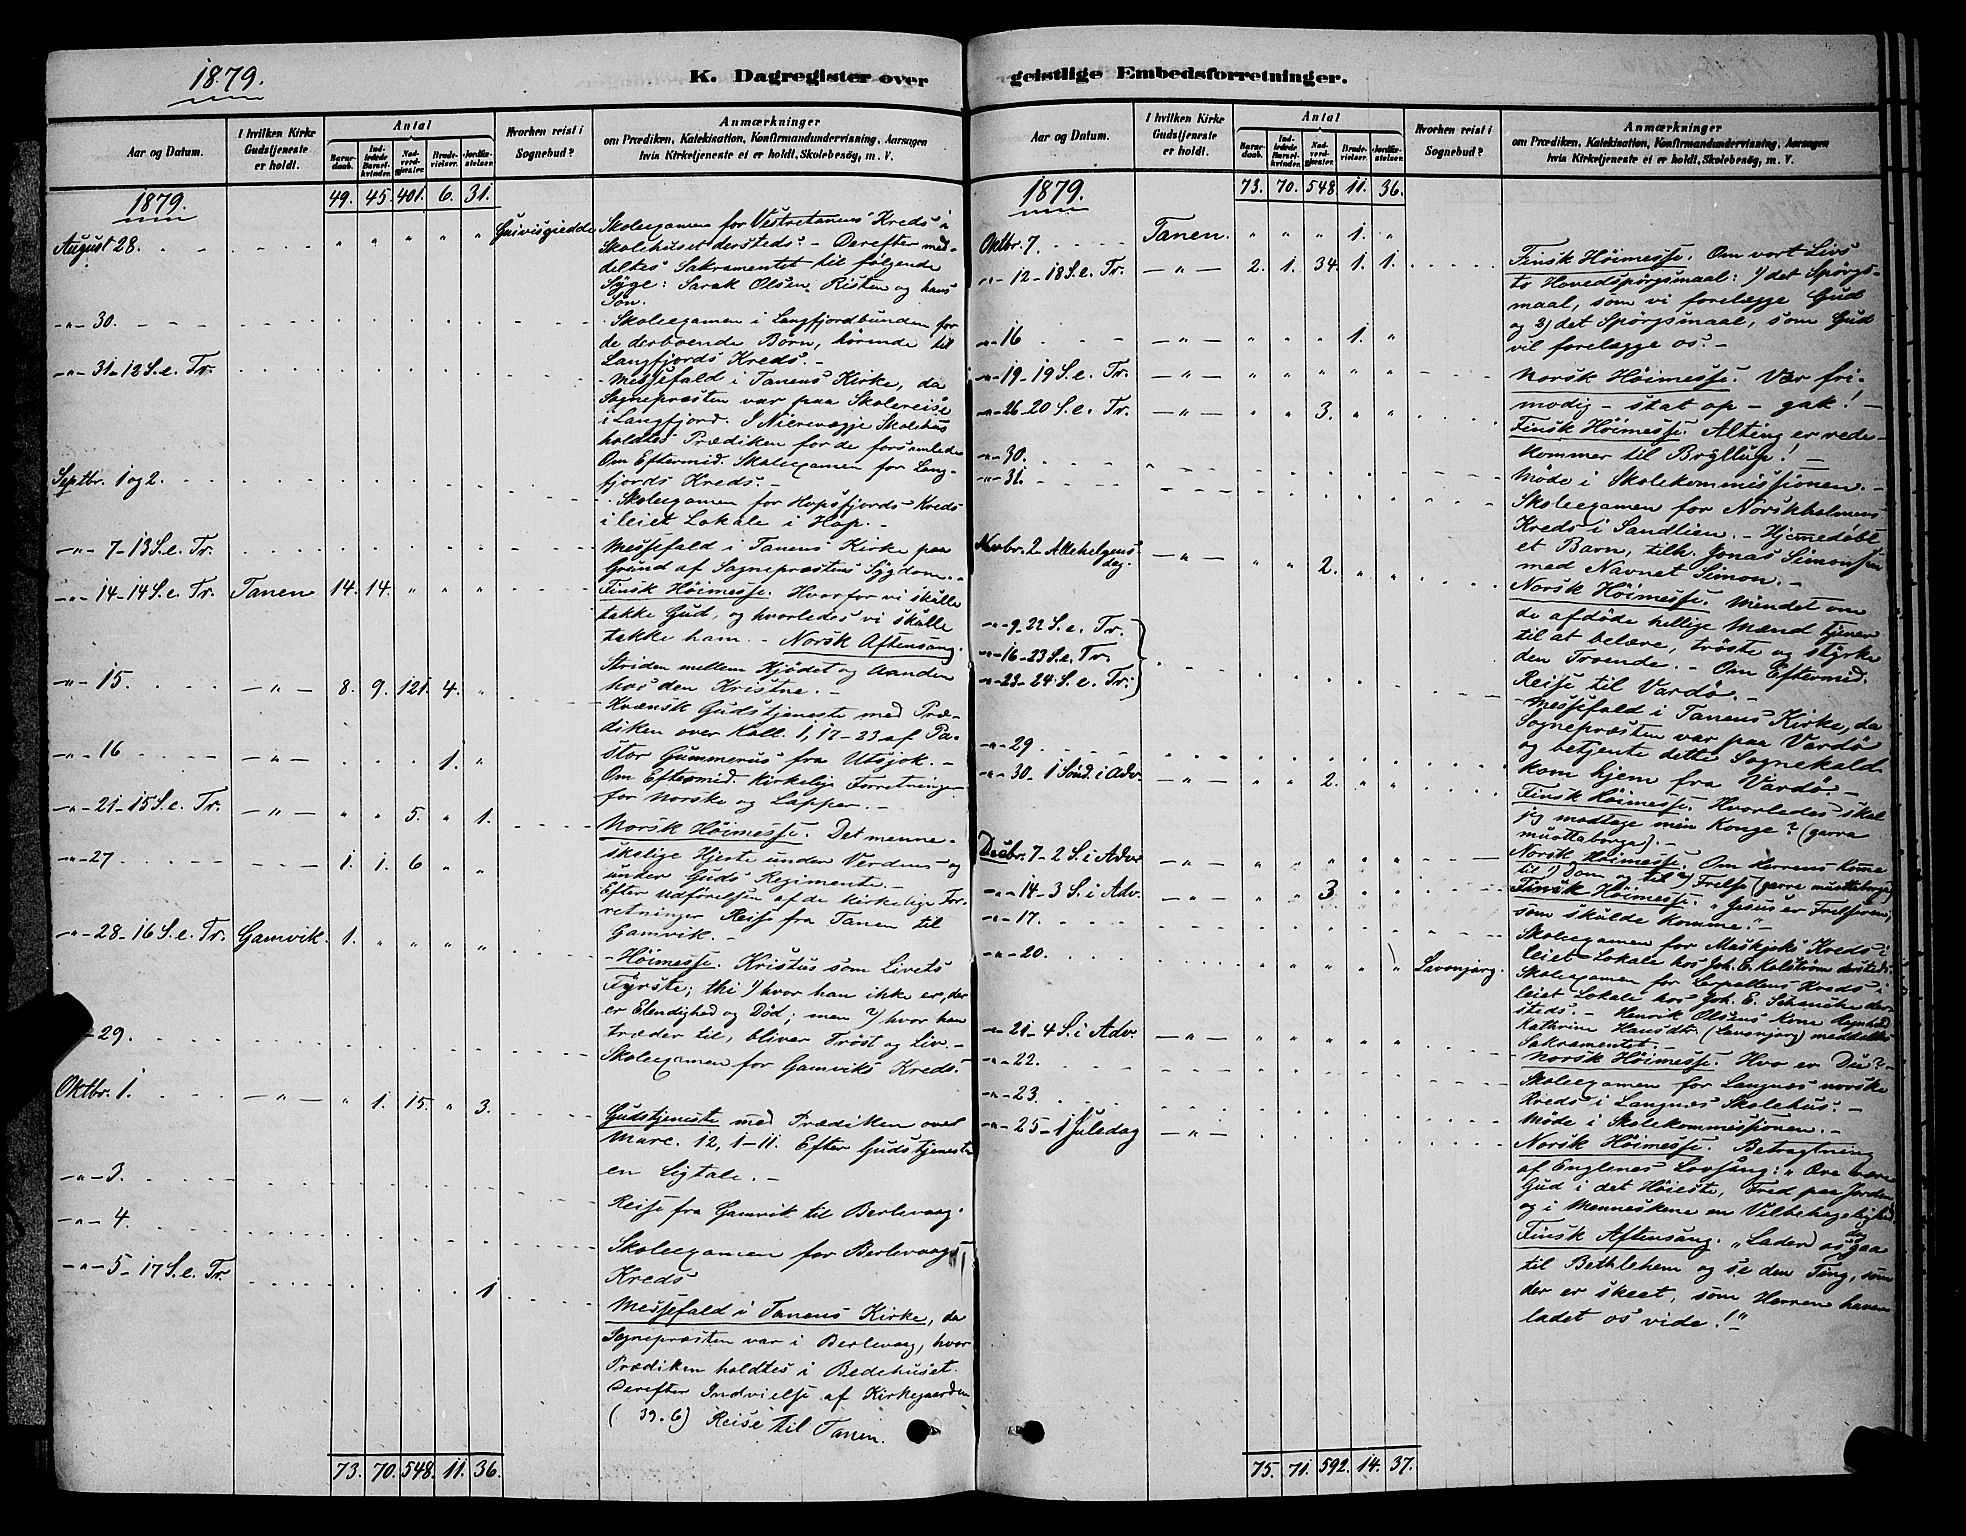 1879.
K. Dagregister over
Aar og Datum.
I hvilken Kirke Gudstjeneste er holdt.
Antal
Barnedaab.
Indledede Barselkvinder.
Nadverdgjester.
Brudevielser.
Jordfæstelser.
Hvorhen reist i Sognebud?
Anmærkninger
om Prædiken, Katekisation, Konfirmandundervisning, Aarsagen
hvis Kirketjeneste ei er holdt, Skolebesøg, m. V.
1879. 49. 45. 401. 6. 31.
August 28. " " " " " Guivisgiedde
Skoleexamen for Vestretanens Kreds i
Skolehuset dersteds. - Derefter med-
deltes Sakramentet til følgende
Syge: Sarak Olsen, Risten og hans
Søn.
-"- 30.
Skoleexamen i Langfjordbunden for
de derboende Børn, hørende til
Langfjords Kreds. -
-"- 31 - 12 S. e. Tr.
Messefald i Tanens Kirke, da
Sognepræsten var paa Skolereise
i Langfjord. I Nierevægje Skolehus
holdtes Prædiken for de forsamlede
Om Eftermid. Skoleexamen for Lang-
fjords Kreds. -
Septbr. 1 og 2.
Skoleexamen for Hopsfjords Kreds
i leiet Lokale i Hop. -
-"- 7 - 13 S. e. Tr.
Messefald i Tanens Kirke paa
Grund af Sognepræstens Sygdom. -
-"- 14 - 14 S. e. Tr. Tanen 14. 14. " " "
Finsk Høimesse. Hvorfor vi skulle
takke Gud, og hvorledes vi skulle
takke ham. - Norsk Aftensang.
Striden mellem Kjødet og Aanden
hos den Kristne. -
-"- 15. -"- 8. 9. 121. 4. "
Kvænsk Gudstjeneste med Præ-
diken over Koll. 1, 17-23 af Pa-
stor Gummerus fra Utsjok. -
-"- 16 -"- 1. "
Om Eftermid. kirkelige Forretninger
for Norske og Lapper. -
-"- 21 - 15 S. e. Tr. -"- " " 5. " 1.
Norsk Høimesse. Det menne-
skelige Hjerte under Verdens og
under Guds Regimente. -
-"- 27 -"- 1. 1. 6 " "
Efter Udførelsen af de kirkelige For-
retninger Reise fra Tanen til
Gamvik. -
-"- 28 - 16 S. e. Tr. Gamvik. 1. " " " "
Høimesse. Kristus som Livets
Fyrste; thi 1) hvor han ikke er, der
er Elendighed og Død; men 2) hvor han
træder til, bliver Trøst og Liv. -
- 29.
Skoleexamen for Gamviks Kreds.
Oktbr. 1. -"- " 1. 15. " 3.
Gudstjeneste med Prædiken over
Marc. 12, 1-11. Efter Gudstjenesten
en Ligtale. -
-"- 3.
Reise fra Gamvik til Berlevaag.
-"- 4.
Skoleexamen for Berlevaags
Kreds
-"- 5 - 17 S. e. Tr. 1
Messefald i Tanens Kirke, da
Sognepræsten var i Berlevaag, hvor
Prædiken holdtes i Bedehuset.
Derefter Indvielse af Kirkegaarden
( 39. 6) Reise til Tanen.
73. 70. 548. 11. 36.
geistlige Embedsforretninger.
Aar og Datum.
I hvilken Kirke Gudstjeneste er holdt.
Antal
Barnedaab.
Indledede Barselkvinder.
Nadverdgjester.
Brudevielser.
Jordfæstelser.
Hvorhen reist i Sognebud?
Anmærkninger
om Prædiken, Katekisation, Konfirmandundervisning, Aarsagen
hvis Kirketjeneste ei er holdt, Skolebesøg, m. V.
1879. 73. 70. 548. 11. 36.
Oktbr. 7. Tanen. " " " 1. "
-"- 12 - 18 S. e. Tr. -"- 2. 1. 34. 1. 1.
Finsk Høimesse. Om vort Livs
to Hovedspørgsmaal: 1) det Spørgs-
maal, som vi forelægge Gud
og 2) det Spørgsmaal, som Gud
vil forelægge os. -
-"- 16 -"- " " " 1. "
-"- 19 - 19 S. e. Tr. -"- " " " " "
Norsk Høimesse. Vær fri-
modig - stat op - gak! -
-"- 26 - 20 S. e. Tr. -"- " " 3. " "
Finsk Høimesse. Alting er rede -
kommer til Bryllup! -
-"- 30.
Møde i Skolekommissionen. -
-"- 31.
Skoleexamen for Norskholmens
Kreds i Sandlien. - Hjemmedøbt
et Barn, tilh. Jonas Simonsen
med Navnet Simon. -
Novbr. 2 - Allehelgens dag. -"- " " 2. " "
Norsk Høimesse. Mindet om
de afdøde hellige Mænd tjener
til at belære, trøste og styrke
den Troende. - Om Eftermid.
Reise til Vardø. -
-"- 9 - 22 S. e. Tr.
-"- 16 - 23 S. e. Tr.
-"- 23 - 24 S. e. Tr.
Messefald i Tanens Kirke, da
Sognepræsten var paa Vardø
og betjente dette Sognekald
-"- 29
kom hjem fra Vardø. -
-"- 30. 1 Sønd. i Adv. -"- " " 2. " "
Finsk Høimesse. Hvorledes skal
jeg modtage min Konge? (gavra
muottaborga).
Decbr. 7 - 2 S. i Adv. -"- " " " " "
Norsk Høimesse. Om Herrens Komme
til 1) Dom og til 2) Frelse (gavra muottaborga)
-"- 14 - 3 S. i Adv. -"- " " 3. " "
Finsk Høimesse. "Jesus er Frelseren,
som skulde komme". -
-"- 17.
Skoleexamen for Maskjoks Kreds i
leiet Lokale hos Joh. E. Kalstrøm dersteds.
-"- 20. " " " " " Lavonjarg.
Skoleexamen for Lerpollens Kreds i
leiet Lokale hos Joh. E. Schanche der-
steds. - Henrik Olsens Kone
Kathrine Hansdtr. (Lavonjarg) meddeltes
Sakramentet. -
-"- 21 - 4 S. i Adv. -"- " " " " "
Norsk Høimesse. Hvo er Du? -
-"- 22.
Skoleexamen for Langnæs norske
Kreds i Langnæs Skolehus. -
-"- 23.
Møde i Skolekommissionen. -
-"- 25 - 1 Juledag -"-
Norsk Høimesse. Betragtning
af Englenes Lovsang: "Ære være
Gud i det Høieste, Fred paa Jorden
og i Menneskene en Velbehagelighed.
Finsk Aftensang. "Lader os dog gaa
til Bethlehem og se den Ting, som
der er skeet, som Herren haver
ladet os vide!"
75. 71. 592. 14. 37.